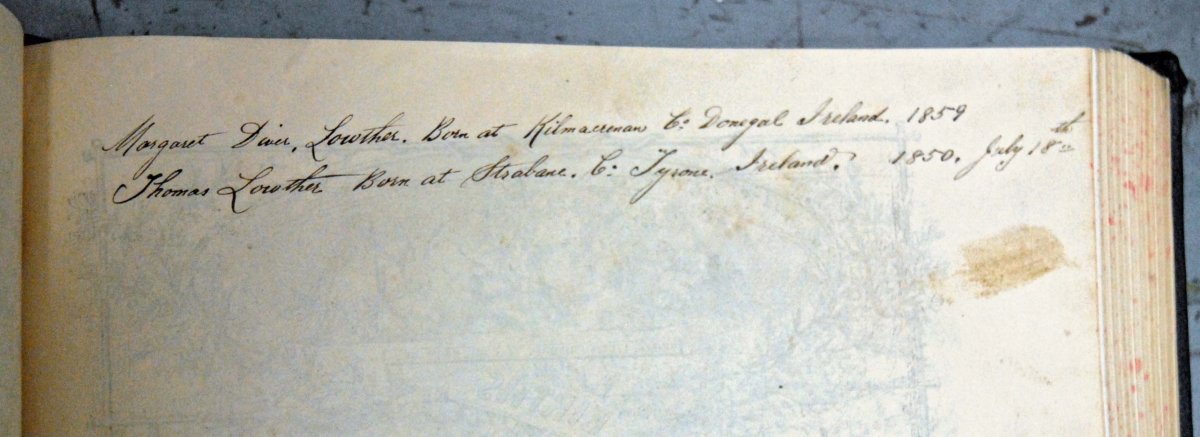 Margaret Diver, Lowther. Born at Kilmacrenan Co: Donegal Ireland. 1859
Thomas Lowther Born at Strabane. Co: Tyrone. Ireland. 1850. July 18th